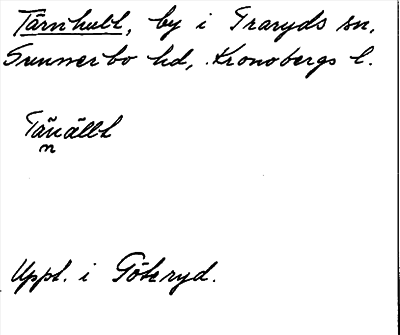 Tärnhult, by i Traryds sn,
Sunnerbo hd, Kronobergs l.
Uppt. i Göteryd.